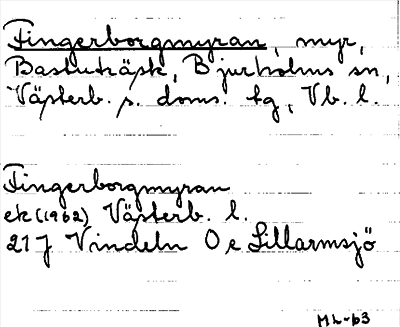 Fingerborgmyran, myr,
Bastuträsk, Bjurholms sn,
Västerb. s. doms. tg, Vb. l.
Fingerborgmyran
ek (1962) Västerb. l.
21 J Vindeln O e Lillarmsjö
ML-63